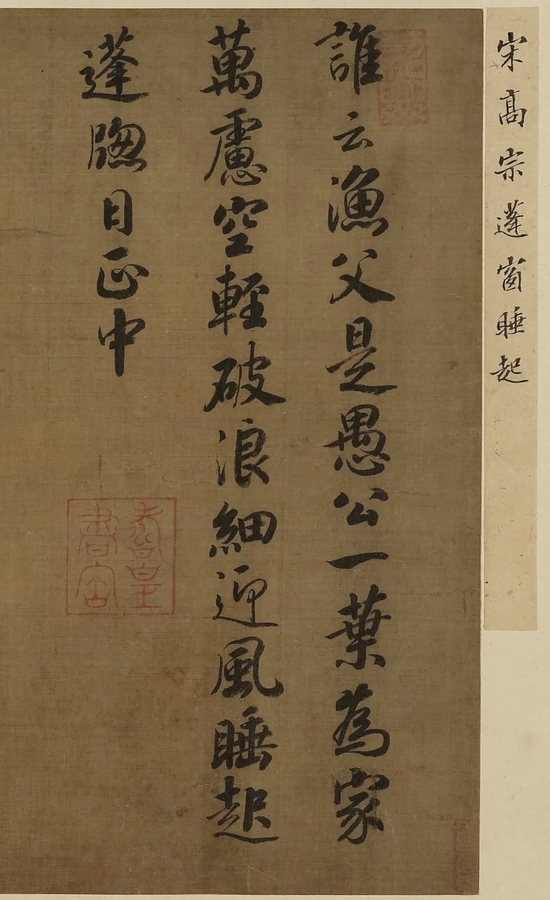 宋高宗蓬窗睡起
誰云漁父是愚公一葉為家
萬慮空輕破浪細迎風睡起
蓬牎日正中